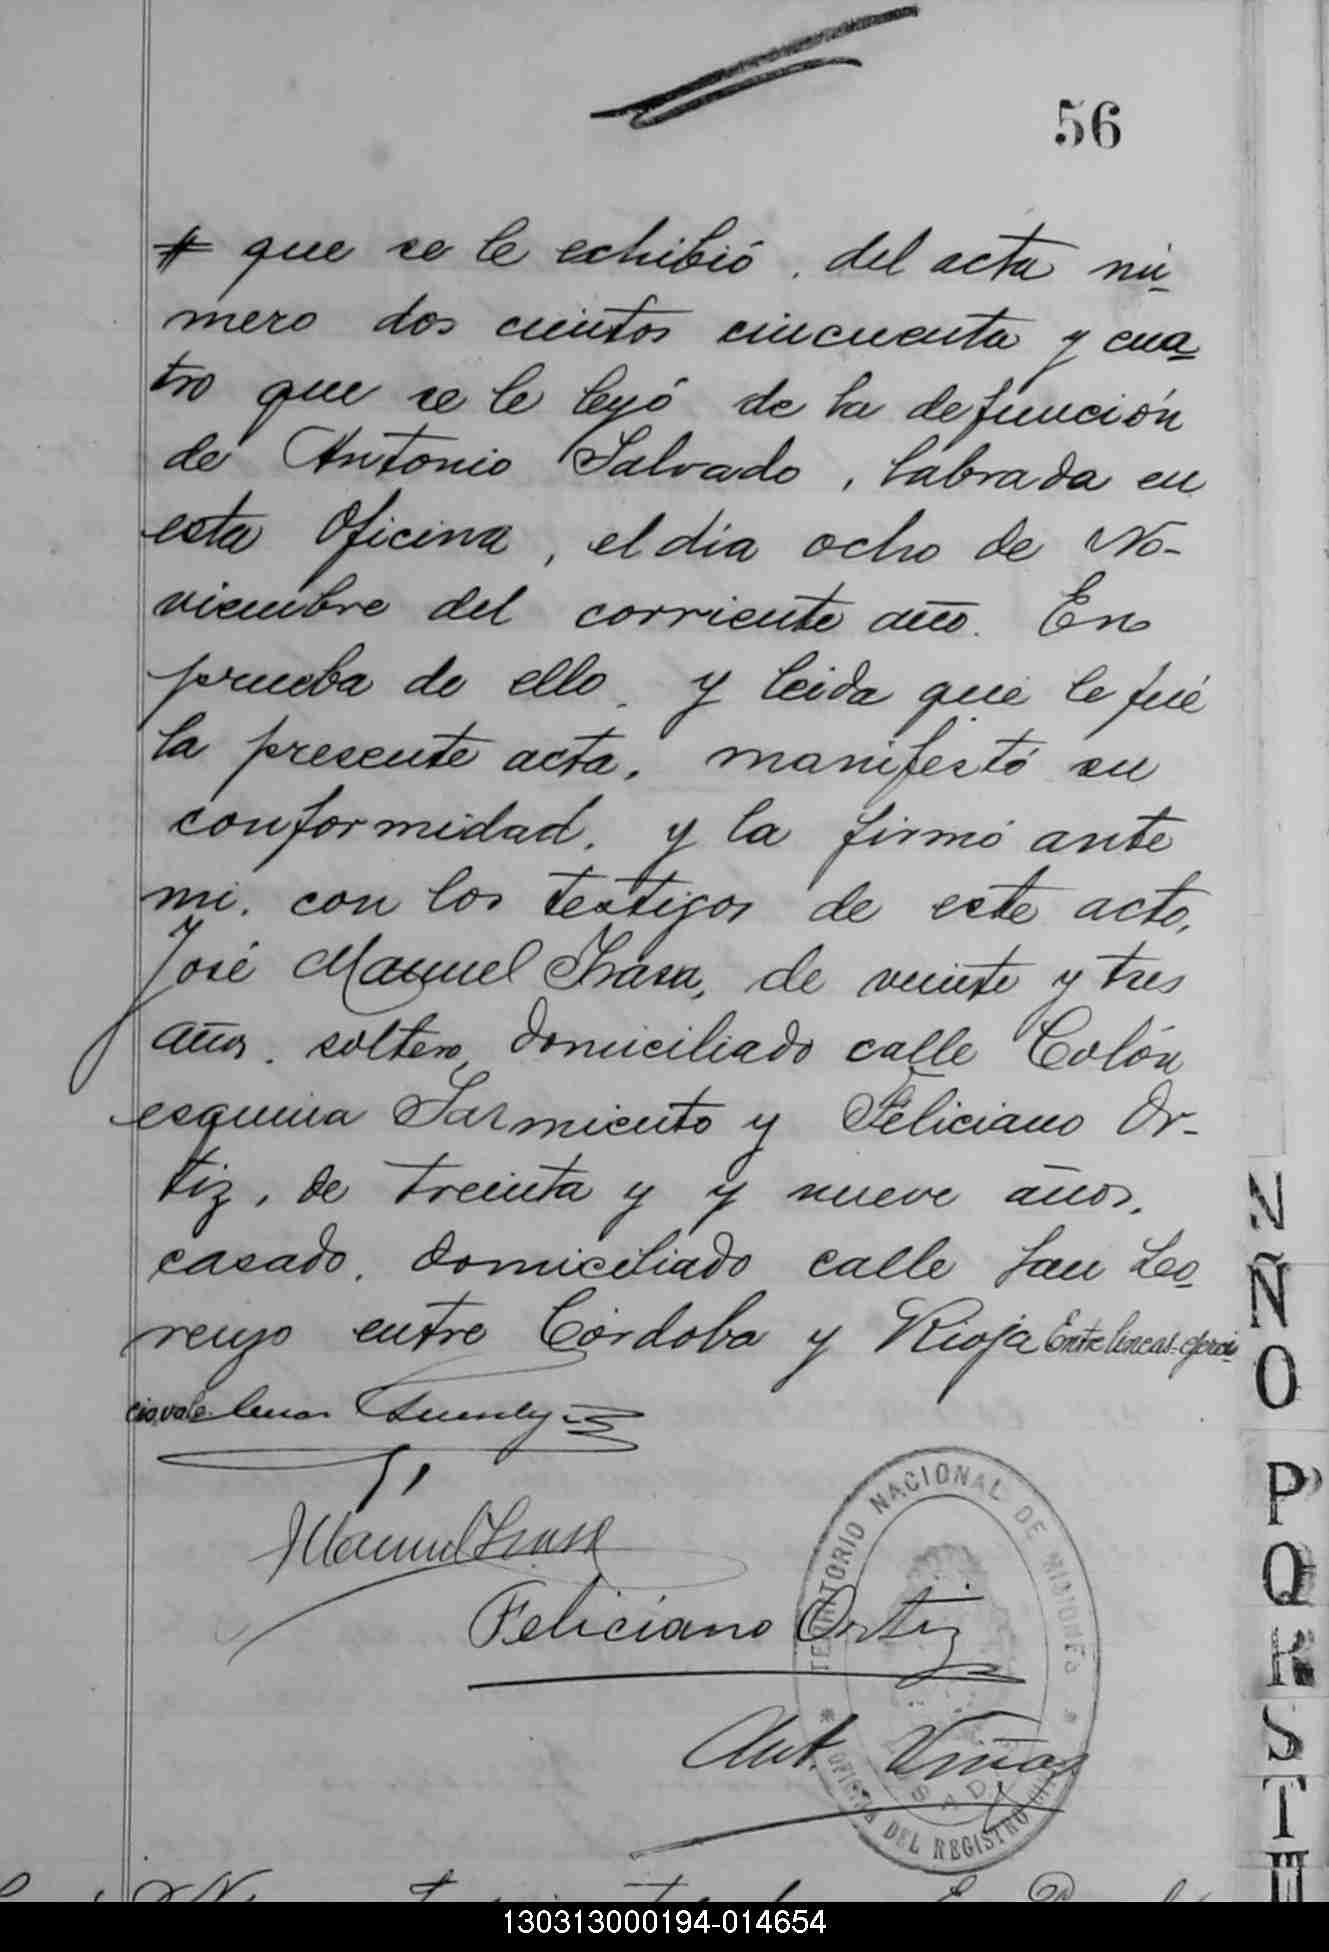 56
# que se le echibió, del acta nú-
mero dos cientos cincuenta y cua-
tro que se le leyó de la defunción
de Antonio Salvado, labrada en
esta Oficina, el dia ocho de No-
viembre del corriente año. En
prueba de ello, y leida que le fué
la presente acta, manifestó su
conformidad, y la firmó ante
mi, con los testigos de este acto,
José Manuel Irasa, de veinte y tres
años, soltero, domiciliado calle Colón
esquina Sarmiento y Feliciano Or-
tiz, de treinta y y nueve años,
casado, domiciliado calle San Lo-
renzo entre Córdoba y Rioja Entre lineas-ejerci-
cio, vale
JManuel Irasa
Feliciano Ortiz
Ant. Viñas
TERRITORIO NACIONAL DE MISIONES
OFICINA DEL REGISTRO CIVIL
N
Ñ
O
P
Q
R
S
T
U
130313000194-014654